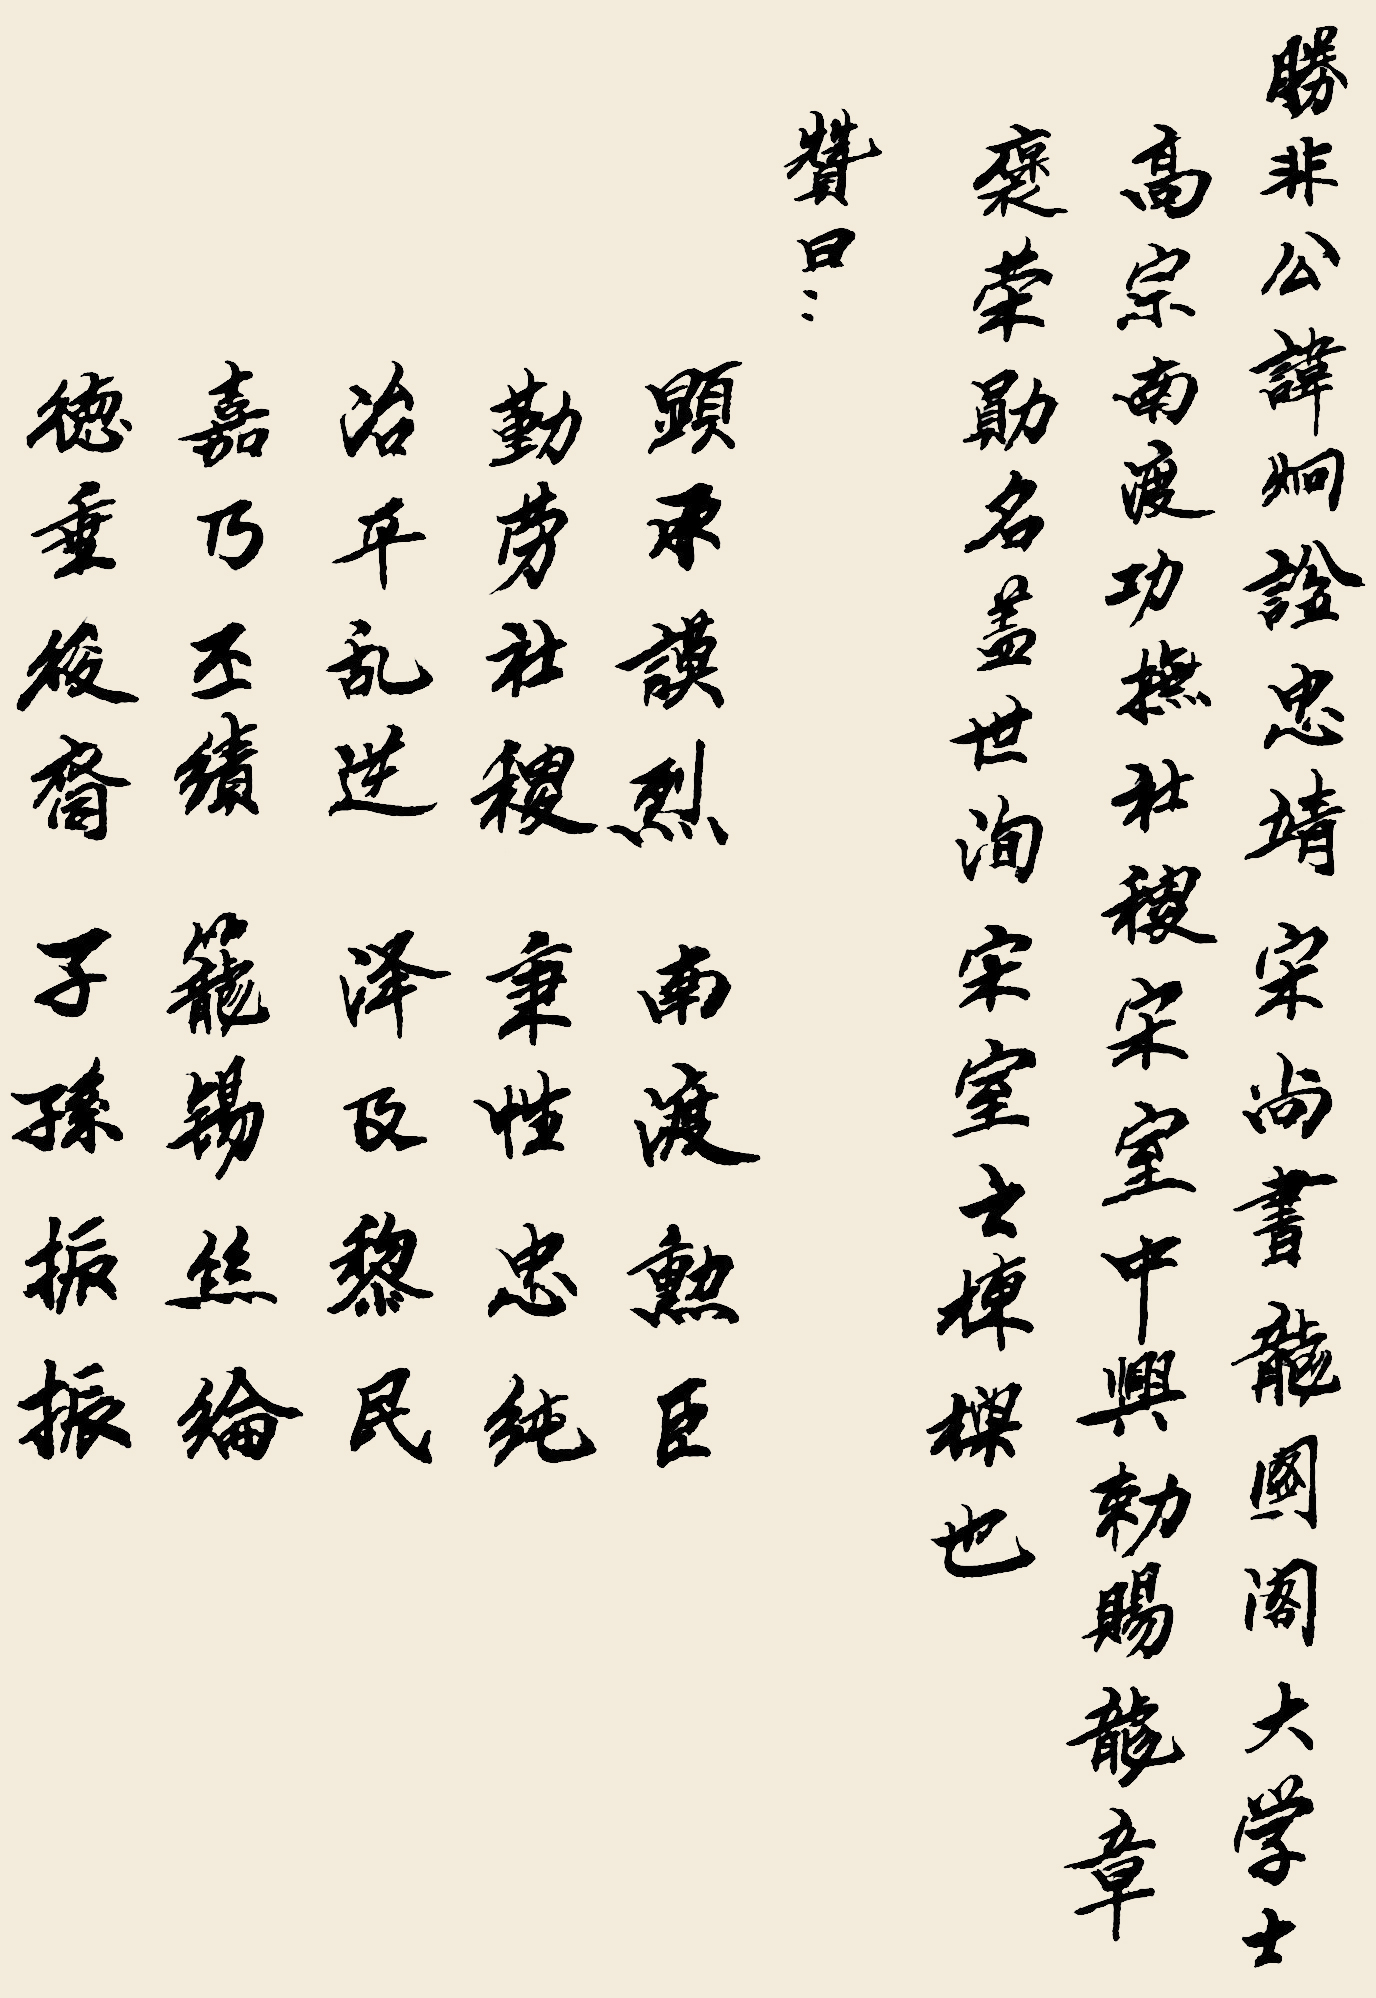 勝非公諱炯諡忠靖宋尚書龍圖阁大学士
高宗南渡功撫社稷宋室中興勅賜龍章
褒荣勛名蓋世洵宋室之棟樑也
贊曰：
顕承謨烈 南渡勲臣
勤劳社稷 秉性忠純
治平乱逆 泽及黎民
嘉乃丕績 寵锡丝綸
德垂後裔 子孫振振